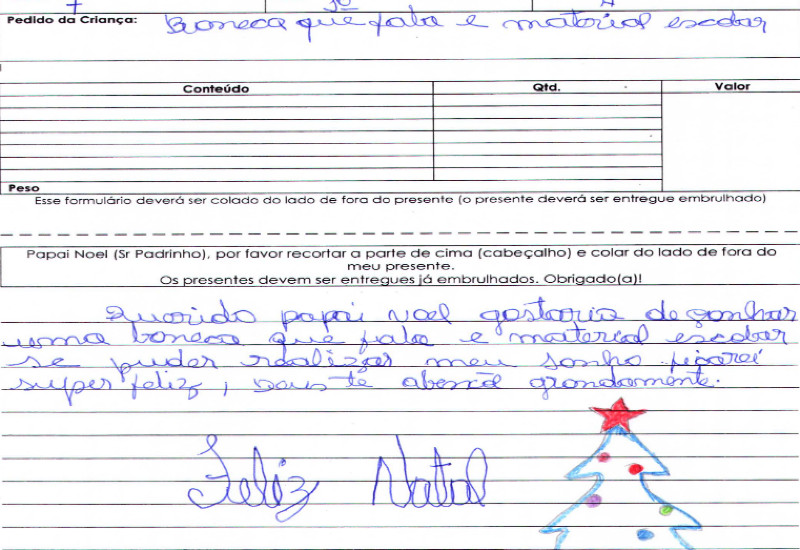 Pedido da Criança: Boneca que fala e material escolar
Conteúdo Qtd. Valor
Peso
Esse formulário deverá ser colado do lado de fora do presente (o presente deverá ser entregue embrulhado)
Papai Noel (Sr Padrinho), por favor recortar a parte de cima (cabeçalho) e colar do lado de fora do
meu presente.
Os presentes devem ser entregues já embrulhados. Obrigado(a)!
Querido papai noel gostaria de gonhar
uma boneca que fala e material escolar
se puder realizar meu sonho ficarei
super feliz, Deus te abençõe grandemente.
Feliz Natal